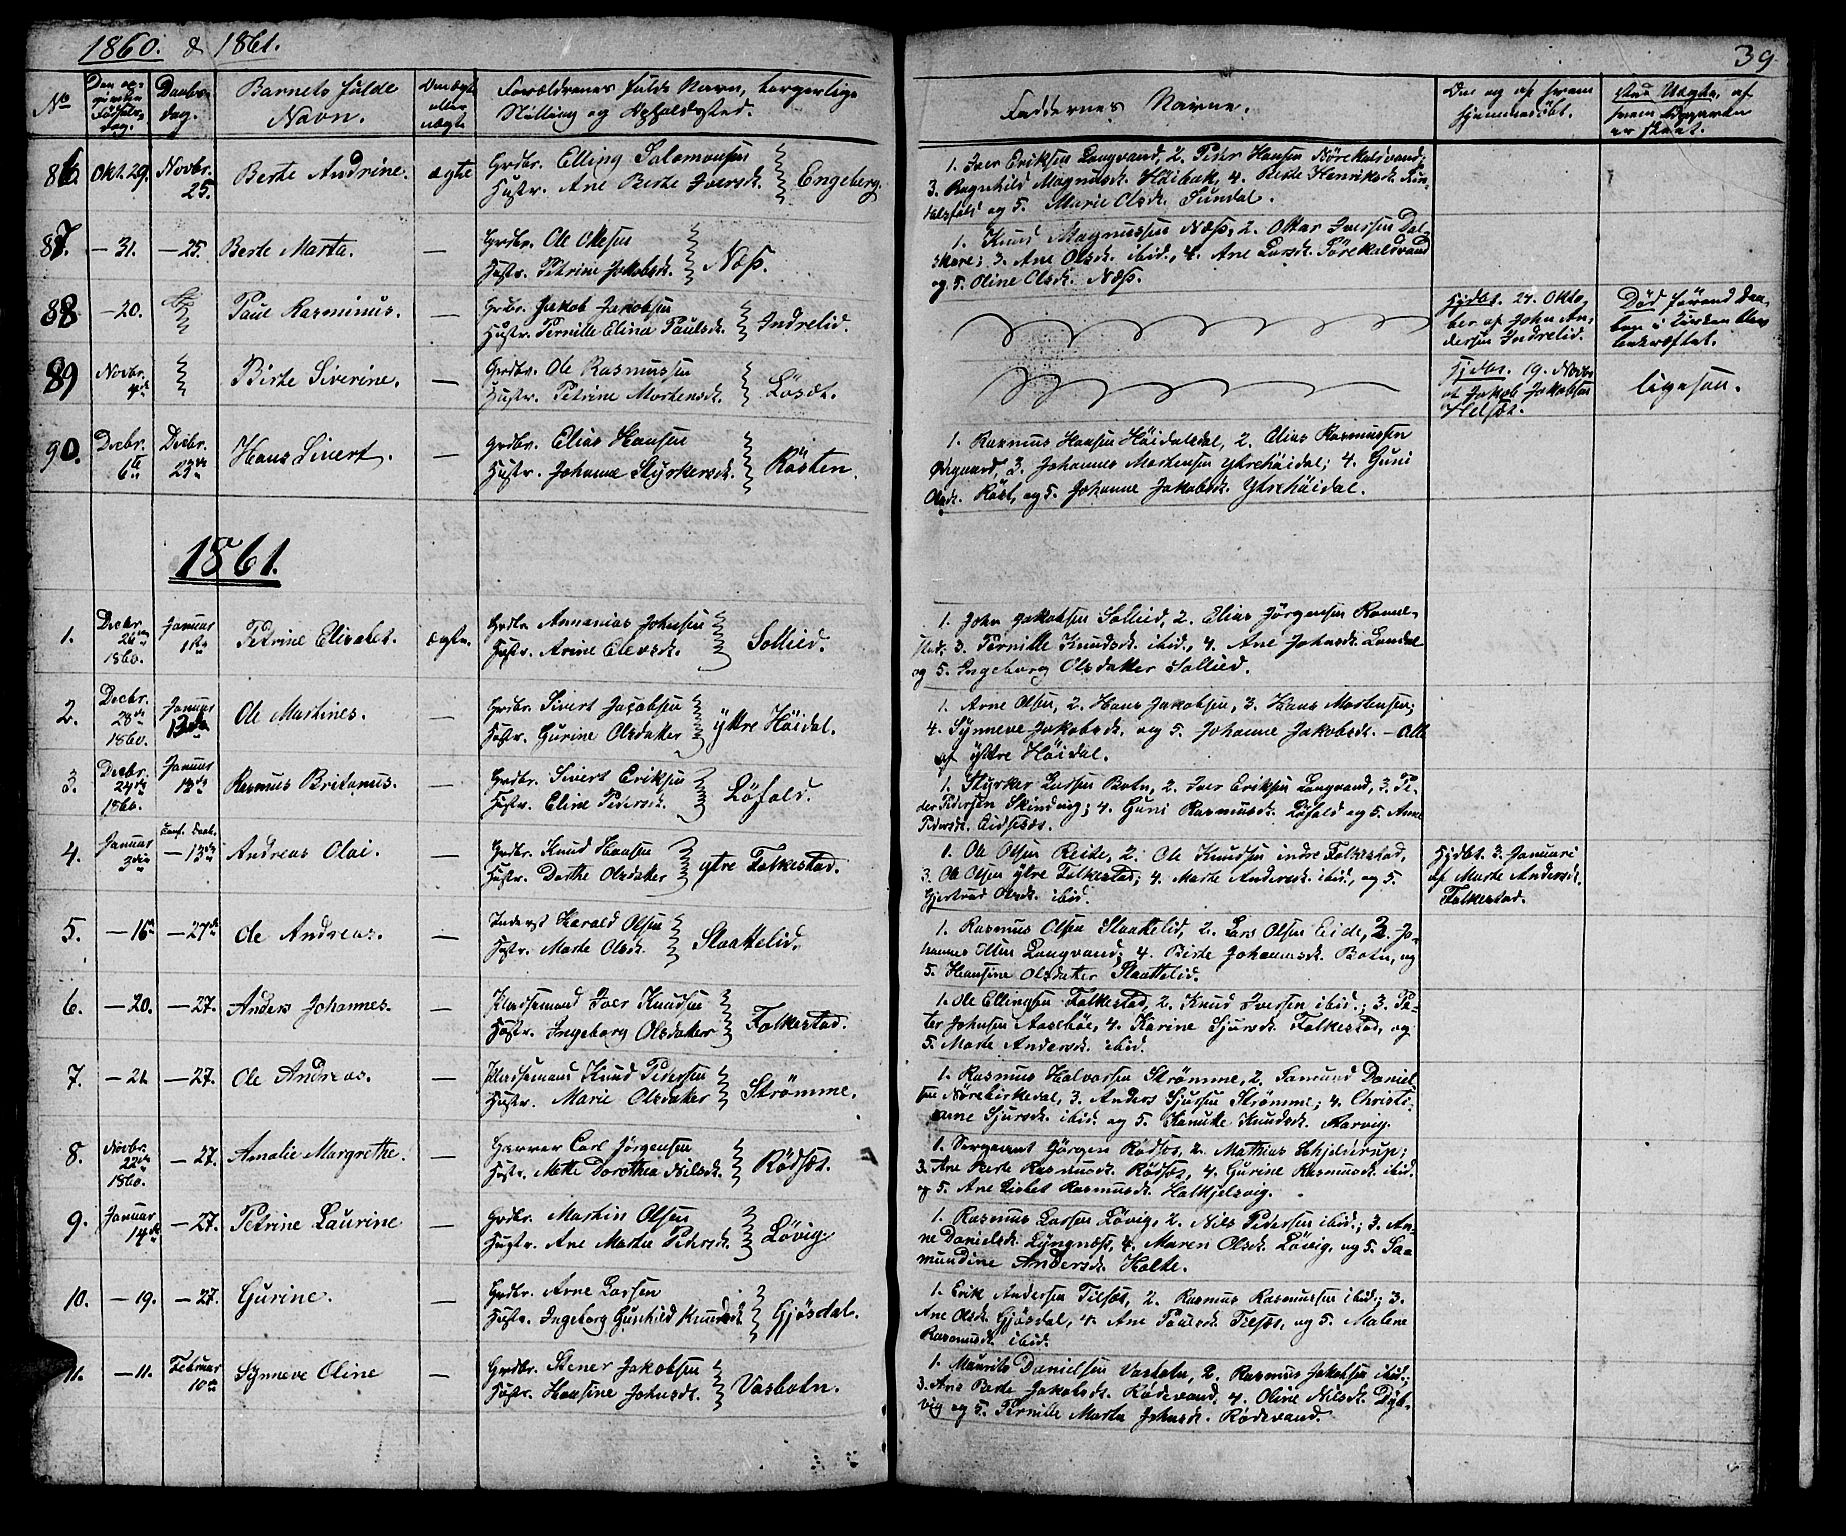 1860. & 1861.
39
No
Daabs-
dag.
Barnets fulde
Navn.
Forældrenes fulde Navn, borgerlige
Stilling og Opholdssted.
Faddernes Navne.
er skeet.
86. Okt. 29. Novbr. 25. Berte Andrine. ægte Grdbr. Elling Salomonsen
Hustr. Ane Berte Iversdr. Engeberg.
1. Iver Eriksen Langvand, 2. Peder Hansen
3. Ragnhild Magnusdr. Høibak, 4. Berte Henriksdr.
og 5. Marie Olsdr. Sundal.
87. — 31. — 25. Berte Marta. — Grdbr. Ole Olsen
Hustr. Petrine Jakobsdr. Næss.
1. Knud Magnussen Næss, 2. Ottar Iversen Dal-
skare; 3. Ane Olsdr. ibid., 4. Ane Larsdr.
og 5. Oline Olsdr. Næss.
88 — 20. Paul Rasminus. — Grdbr. Jakob Jakobsen
Hustr. Pernille Elina Paulsdr. Indrelid.
Hjdbt. 24. Okto-
ber af John An-
dersen Indrelid.
Død førend Daa-
ben i Kirken blev
bekræftet.
89 Novbr. Birte Siverine. — Grdbr. Ole Rasmussen
Hustr. Petrine Mortensdr. Løsæt.
Hjdbt. 19. Novbr.
af Jakob Jakobsen
ligesaa.
90. Decbr. 6te Decbr. 23de Hans Sivert. — Grdbr. Elias Hansen
Hustr. Johanne Styrkersdr. Røsten.
1. Rasmus Hansen Høidalsdal, 2. Elias Rasmussen
Øvgaard, 3. Johannes Mortensen Ytrehøidal; 4. Guni
Olsdr. Røst, og 5. Johanne Jakobsdr. Ytrehøidal.
1861.
1. Decbr. 26de 1860. Januar 1ste Petrine Elisabet. ægte. Grdbr. Annanias Johnsen
Hustr. Arine Elevsdr. Sollied.
1. John Jakobsen Sollied, 2. Elias Jørgensen
3. Pernille Knudsdr. ibid., 4. Ane Johnsdr. Lændal
og 5. Ingeborg Olsdatter Sollied.
2. Decbr. 28de 1860. Januar 13de Ole Martines. — Grdbr. Sivert Jacobsen
Hustr. Gurine Olsdatter ytre Høidal.
1. Arne Olsen, 2. Hans Jakobsen, 3. Hans Mortensen;
4. Synneve Jakobsdr. og 5. Johanne Jakobsdr. – Alle
af ystre Høidal.
3. Decbr. 24de 1860. Januar 13de Rasmus Britanus. — Grdbr. Sivert Eriksen
Hustr. Eline Pedersdr. Løfald.
1. Styrker Larsen Botn, 2. Iver Eriksen Langvand, 3. Pe-
der Pedersen Skindvig; 4. Guni Rasmusdr. Løfald og 5. Anne
Pedersdr. Eidsets.
4. Januar 3die — 13de Andreas Olai. — Grdbr. Knud Hansen
Hustr. Dorthe Olsdatter ytre Folkestad.
1. Ole Olsen Reite, 2. Ole Knudsen indre Folkestad,
3. Ole Olsen ytre Folkestad; 4. Marte Andersdr. ibid., og 5.
Gjertrud Olsdr. ibid.
Hjdbt. 3. Januari
af Marte Andersdr.
Folkestad.
5. — 16de — 27de Ole Andreas. — Inderst Harald Olsen
Hustr. Marte Olsdr. Slaattelid.
1. Rasmus Olsen Slaattelid, 2. Lars Olsen Eide, 3. Jo-
hannes Olsen Langvand; 4. Birte Johannsdr. Botn, og
5. Hansine Olsdatter Slaattelid.
6. — 20. — 27. Anders Johannes. — Pladsemand Iver Knudsen
Hustr. Ingeborg Olsdatter Folkestad.
1. Ole Ellingsen Folkestad, 2. Knud Iversen ibid.; 3. Pe-
ter Johnsen Aasebøe, 4. Karine Sjursdr. Folkestad, og
5. Marte Andersdr. ibid.
7. — 21. — 27. Ole Andreas. — Pladsemand Knud Pedersen
Hustr. Marie Olsdatter Strømme.
1. Rasmus Halvorsen Strømme, 2. Samund Daniel-
sen Nørebirkedal, 3. Anders Sjursen Strømme; 4. Christi-
anne Sjursdr. ibid. og 5. Kanutte Knudsdr. Aarvig.
8. Novbr. 22de 1860. — 27. Amalie Margrethe. — Garver Carl Jørgensen
Hustr. Mette Dorothea Nilsdr. Rødsæt.
1. Sergeant Jørgen Rødsæt, 2. Mathias Schjelderup;
3. Ane Berte Rasmusdr. Rødsæt, 4. Gurine Rasmusdr. ibid.
og 5. Ane Lisbet Rasmusdr. Halkjelsvig.
9. Januar 14de — 27. Petrine Laurine — Grdbr. Martin Olsen
Hustr. Ane Marthe Pedersdr. Løvig
1. Rasmus Larsen Løvig, 2. Nils Pedersen ibid; 3. An-
ne Danielsdr. Lyngnæs, 4. Maren Olsdr. Løvig, og 5. Saa-
mundine Andersdr. Holte.
10. — 19. — 27. Gurine. — Grdbr. Arne Larsen
Hustr. Ingeborg Gunhild Knudsdr. Gjøsdal.
1. Erik Andersen Tilsæt, 2. Rasmus Rasmussen ibid; 3.
Ane Olsdr. Gjøsdal, 4. Ane Paulsdr. Tilsæt, og 5. Malene
Rasmusdr. ibid.
11. — 11. Februar 10de Synneve Oline — Grdbr. Stener Jakobsen
Hustr. Hansine Johnsdr. Vasbotn.
1. Maurits Danielsen Vasbotn, 2. Rasmus Jakobsen ibid.;
3. Ane Berte Jakobsdr. Rødevand, 4. Oline Nilsdr. Dyb-
vig og 5. Pernille Marta Johnsdr. Rødevand.